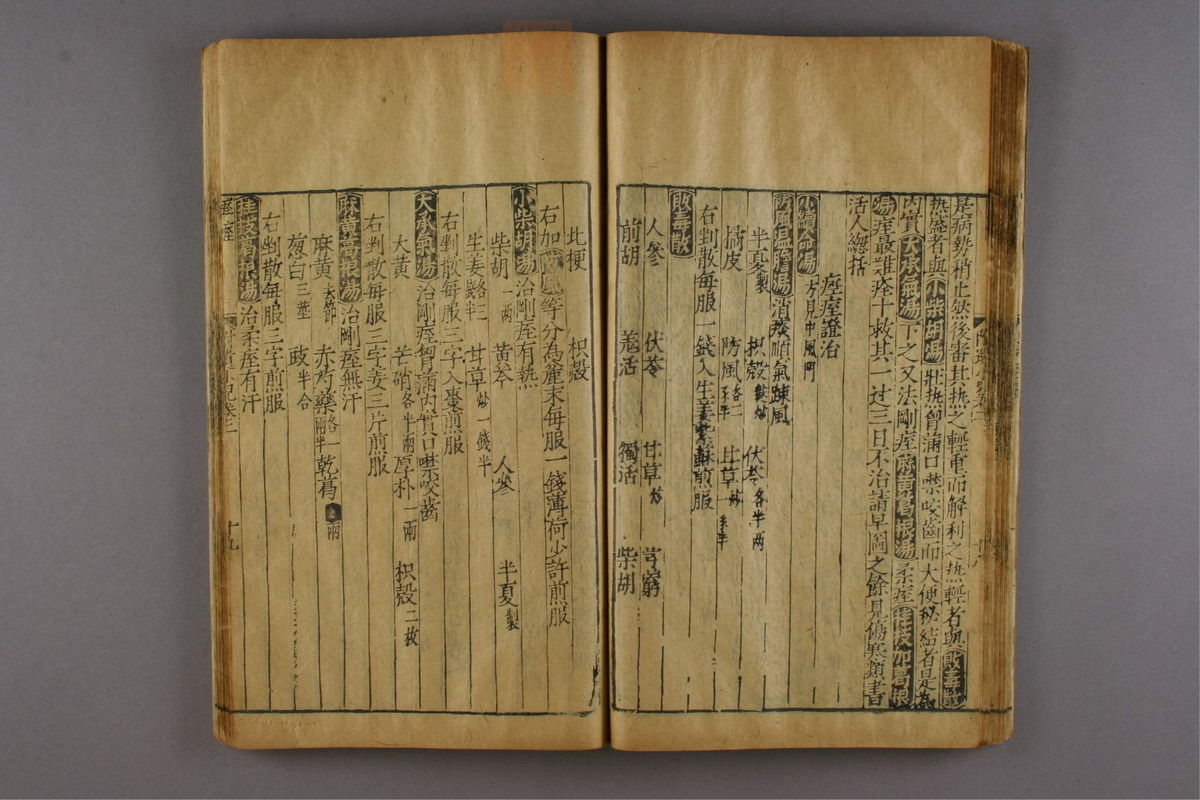 是病勢稍止然後審其热之輕重而解利之热輕者與敗毒散
热盛者與小柴胡湯壯热胷滿口噤咬齒而大便秘結者是為
內實大承氣湯下之又法剛痓麻黃葛根湯柔痓桂枝加葛根
湯痓最難痊十救其一过三日不治請早圖之餘見傷寒類書
活人緫括
痓痙證治
小續命湯 方見中風門
防風温膽湯 消痰順氣踈風
半夏製 枳殼麩炒 伏苓各半两
橘皮 防風各二 甘草炒一
右剉散每服一錢入生姜紫蘇煎服
敗毒散
人參 伏苓 甘草炒 芎藭
前胡 羗活 獨活 柴胡
此梗 枳殼
右加防風等分為麄末每服一錢薄荷少許煎服
小柴胡湯 治剛痓有热
柴胡一两 黃芩 人參 半夏製
生姜 甘草炒一錢半
右剉散每服三字入棗煎服
大承氣湯 治剛痓胷滿內實口噤咬齒
大黃 芒硝各半兩 厚朴一兩 枳殼二枚
右剉散每服三字姜三片煎服
麻黃葛根湯 治剛痓無汗
麻黃去節 赤芍藥 乾葛
葱白三莖 豉半合
右剉散每服三字煎服
桂枝葛根湯 治柔痓有汗
痙痓 卷三 十九